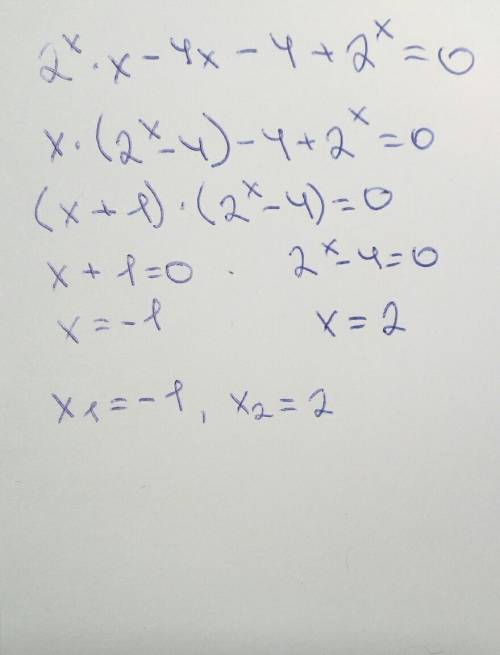 2^x · x - 4x - 4 + 2^x = 0
x · (2^x - 4) - 4 + 2^x = 0
(x + 1) · (2^x - 4) = 0
x + 1 = 0 . 2^x - 4 = 0
x = -1 x = 2
x₁ = -1, x₂ = 2